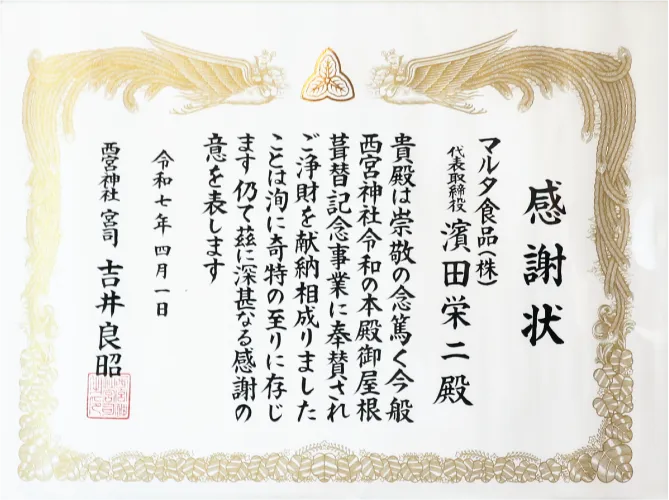 感謝状
マルタ食品(株)
代表取締役 濵田栄二殿
貴殿は崇敬の念篤く今般
西宮神社令和の本殿御屋根
葺替記念事業に奉賛され
ご浄財を献納相成りました
ことは洵に奇特の至りに存じ
ます 仍て茲に深甚なる感謝の
意を表します
令和七年四月一日
西宮神社 宮司 吉井良昭